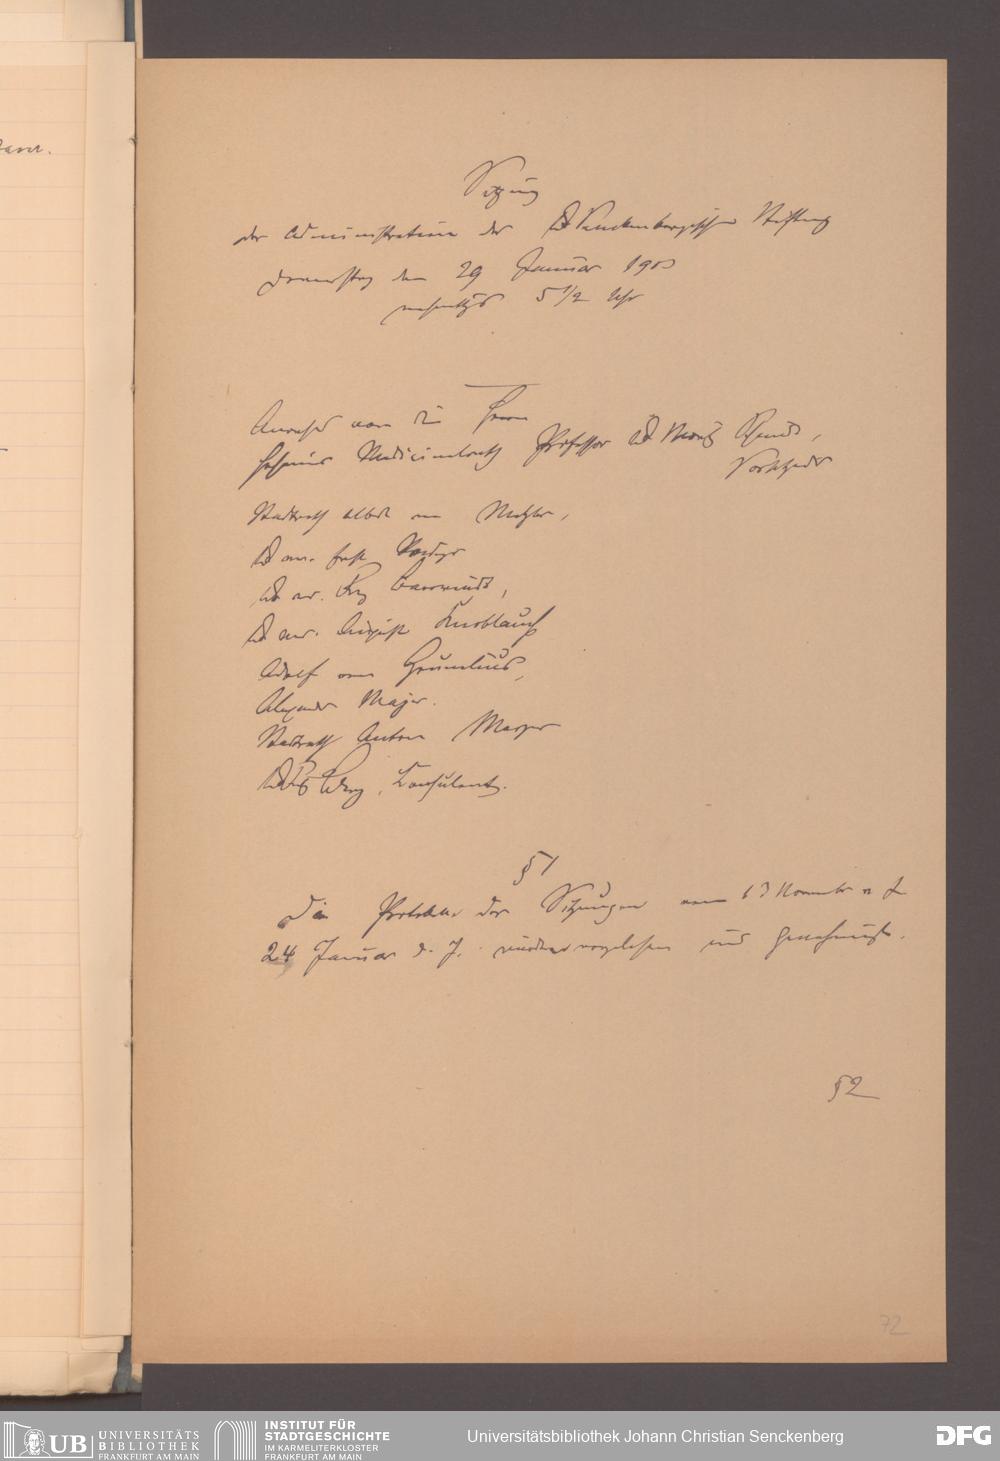 Sitzung
der Administration der Dr Senckenbergischen Stiftung
Donnerstag den 29 Januar 1903
nachmittags 5 1/2 Uhr
Anwesend waren die Herrn
Geheimer Medicinalrath Professor Dr Moritz Schmidt,
Vorsitzender
Stadtrath Albert von Metzler,
Dr med. Ernst
Dr med. Baerwindt,
Dr med. August Knoblauch
Adolf von Grunelius,
Alexander Majer.
Stadtrath Anton Meyer
Dr Fritz Berg, Consulent.
§ 1
Die Protokolle der Sitzungen vom 13 November v. J.
24 Januar d. J. wurden vorgelesen und genehmigt.
§ 2
72
UB UNIVERSITÄTS
BIBLIOTHEK
FRANKFURT AM MAIN
INSTITUT FÜR
STADTGESCHICHTE
IM KARMELITERKLOSTER
FRANKFURT AM MAIN
Universitätsbibliothek Johann Christian Senckenberg
DFG